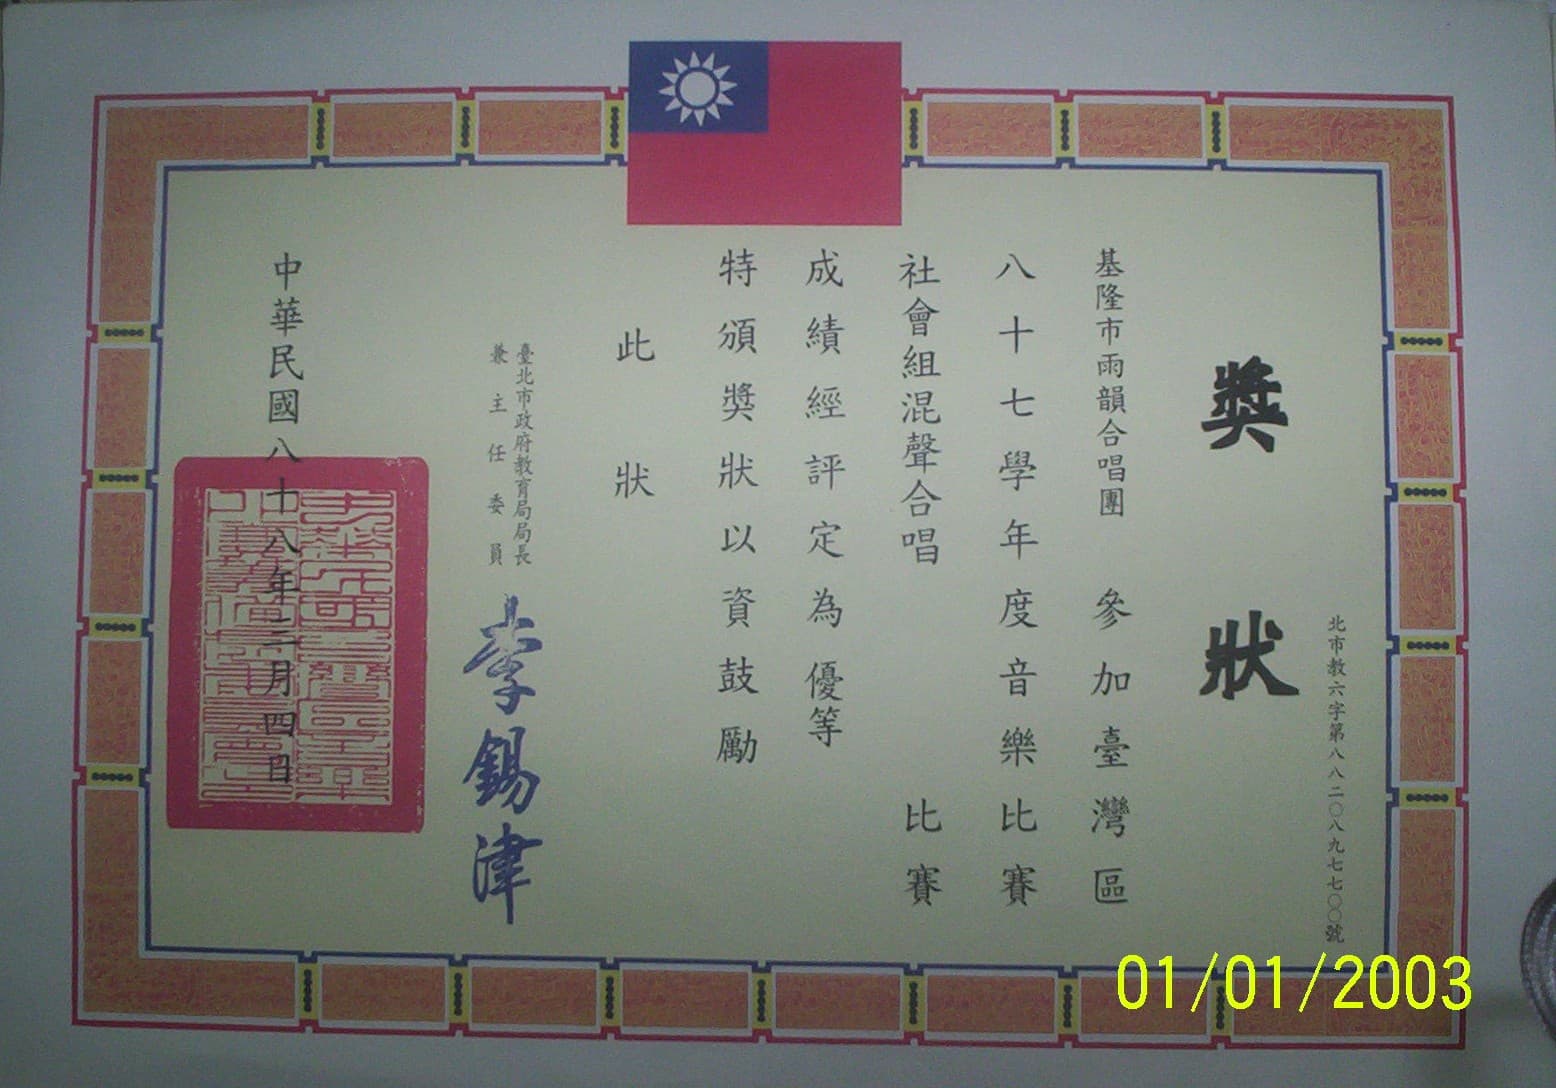 獎狀
北市教六字第八八二〇八九七七〇〇號
基隆市雨韻合唱團 參加臺灣區
八十七學年度音樂比賽
社會組混聲合唱 比賽
成績經評定為優等
特頒獎狀以資鼓勵
此狀
臺北市政府教育局局長
兼主任委員
李錫津
中華民國八十八年三月四日
01/01/2003